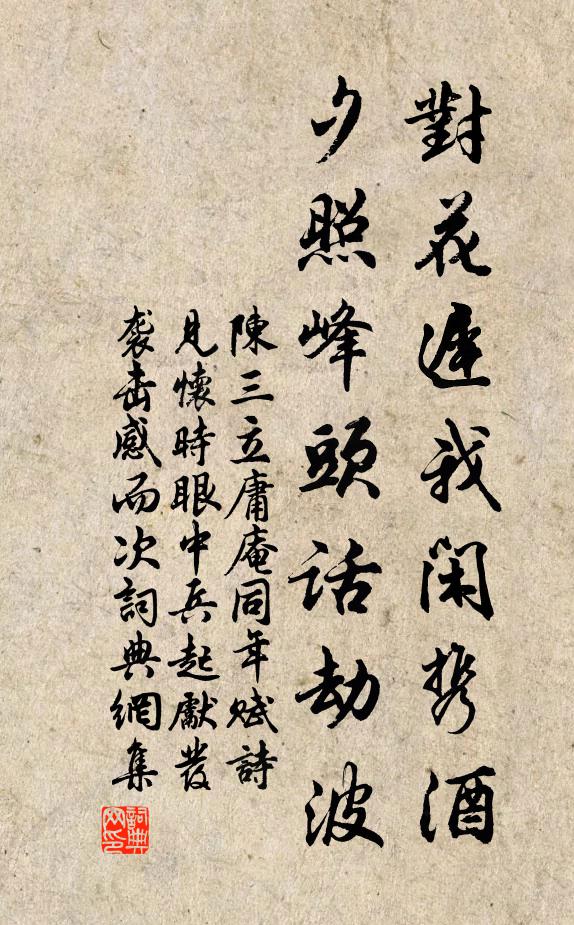 對花遲我閑携酒
夕照峰頭話劫波
陳三立庸庵同年賦詩
見懷時眼中兵起獻發
袭击感而次詞典網集
詞典網印